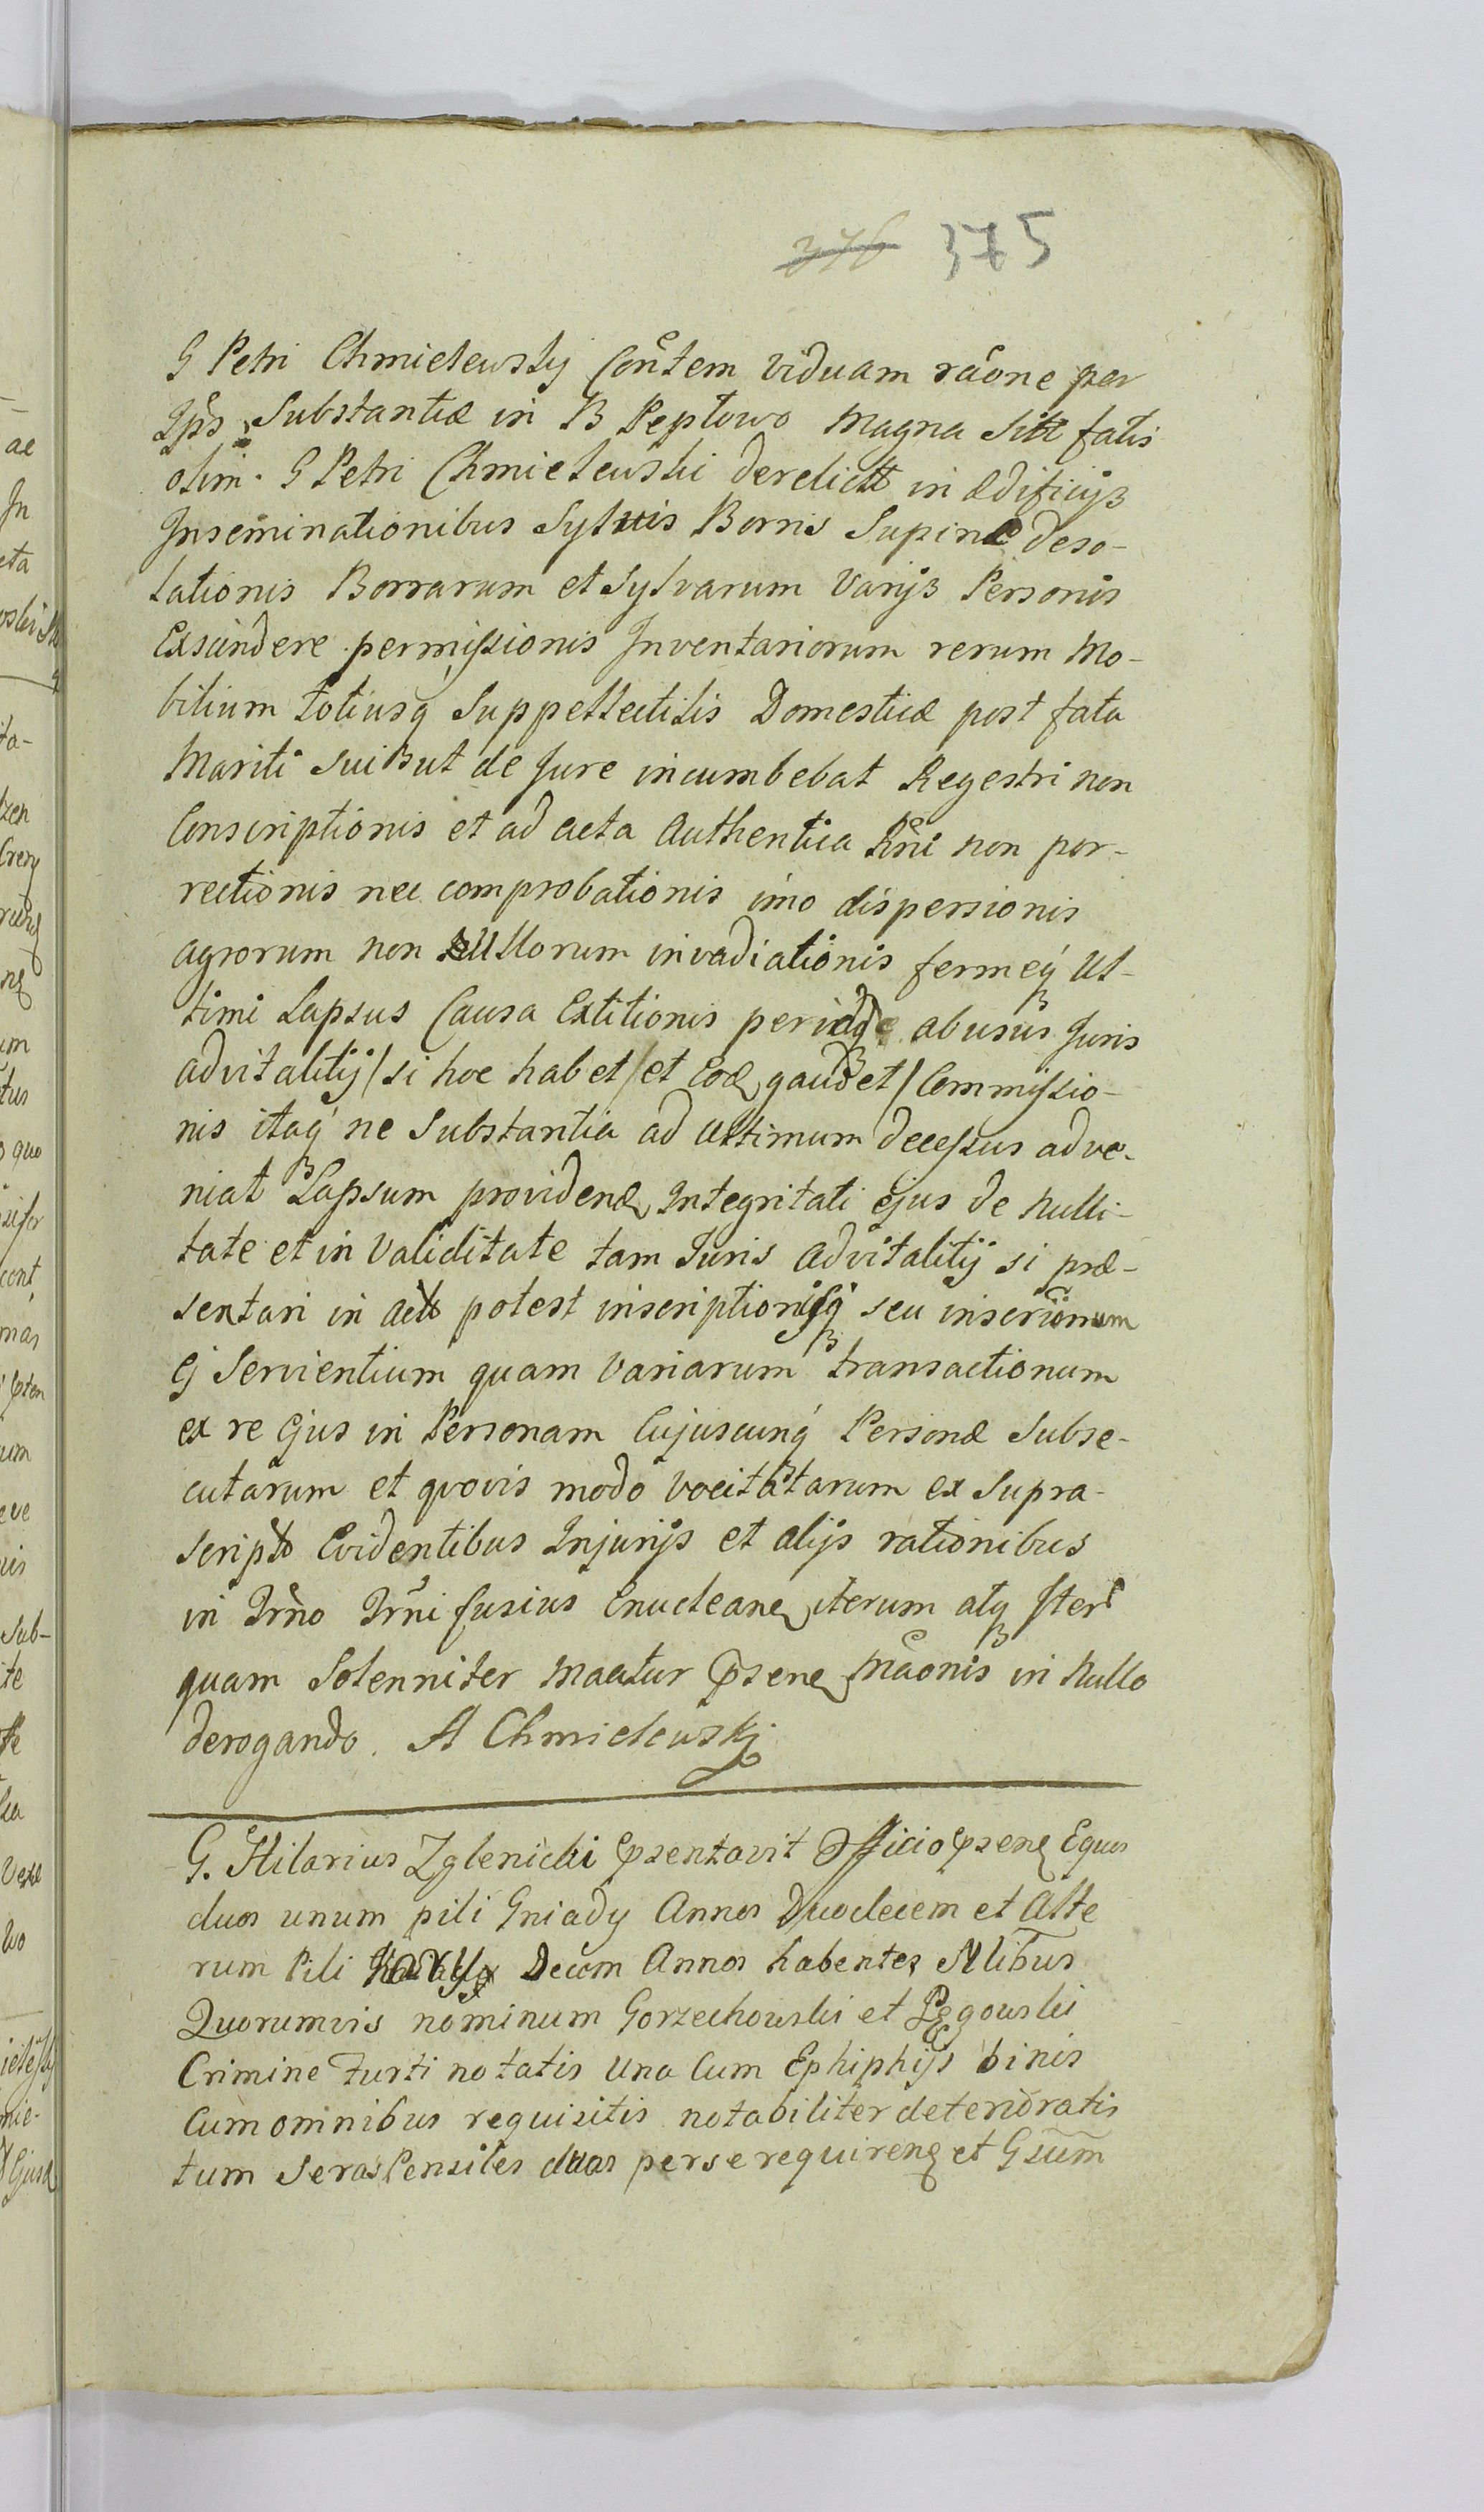 376 375
G Petri Chmielewsky Cõntem viduam rãone per
Jps Substantiæ in B Peptowo Magna Sitt fatis
olim. G Petri Chmielewski derelictt in ædificijs
Inseminationibus Sylvis Borris Supinæ deso-
lationis Borrarum et Sylvarum Varijs Personis
Exscindere permissionis Inventariorum rerum Mo-
bilium totiusq Suppellectilis Domesticæ post fata
Mariti sui ut de Jure incumbebat Regestri non
Conscriptionis et ad acta Authentica Rñi non por-
rectionis nec comprobationis imo dispersionis
agrorum non Nullorum invadiationis fermeq Ul-
timi Lapsus Causa Extitionis abusus Juris
advitalitij / si hoc habet / et Eod gaudet / Commissio-
nis itaq ne Substantia ad Ultimum decessus adve-
niat Lapsum providen Integritati ejus de Nulli-
tate et in Validitate tam Juris Advitalitij si præ-
sentari in actt potest inscriptionisq seu inscriõnum
Ej Servientium quam Variarum transactionum
ex re Ejus in Personam Cujuscunq Personæ Subse-
cutarum et qvovis modo vocitatarum ex Supra-
script Evidentibus Injurijs et alijs rationibus
in Trño Trñi fusius Enuclean iterum atq Iter
quam Solenniter Maãtur Psen Mãonis in Nullo
derogando. A Chmielewskj
G. Hilarius Zglenicki Psentavit Officio Psen Equos
duos unum pili Gniady Annos Duodecem et Alte
rum Pili Decem Annos habentes Nlibus
Quorumvis nominum Gorzechowski et Pęgowski
Crimine furti notatis Una Cum Ephiphijs binis
Cum omnibus requisitis notabiliter deterioratis
tum Seras Pensiles duas per se requiren et Gsum